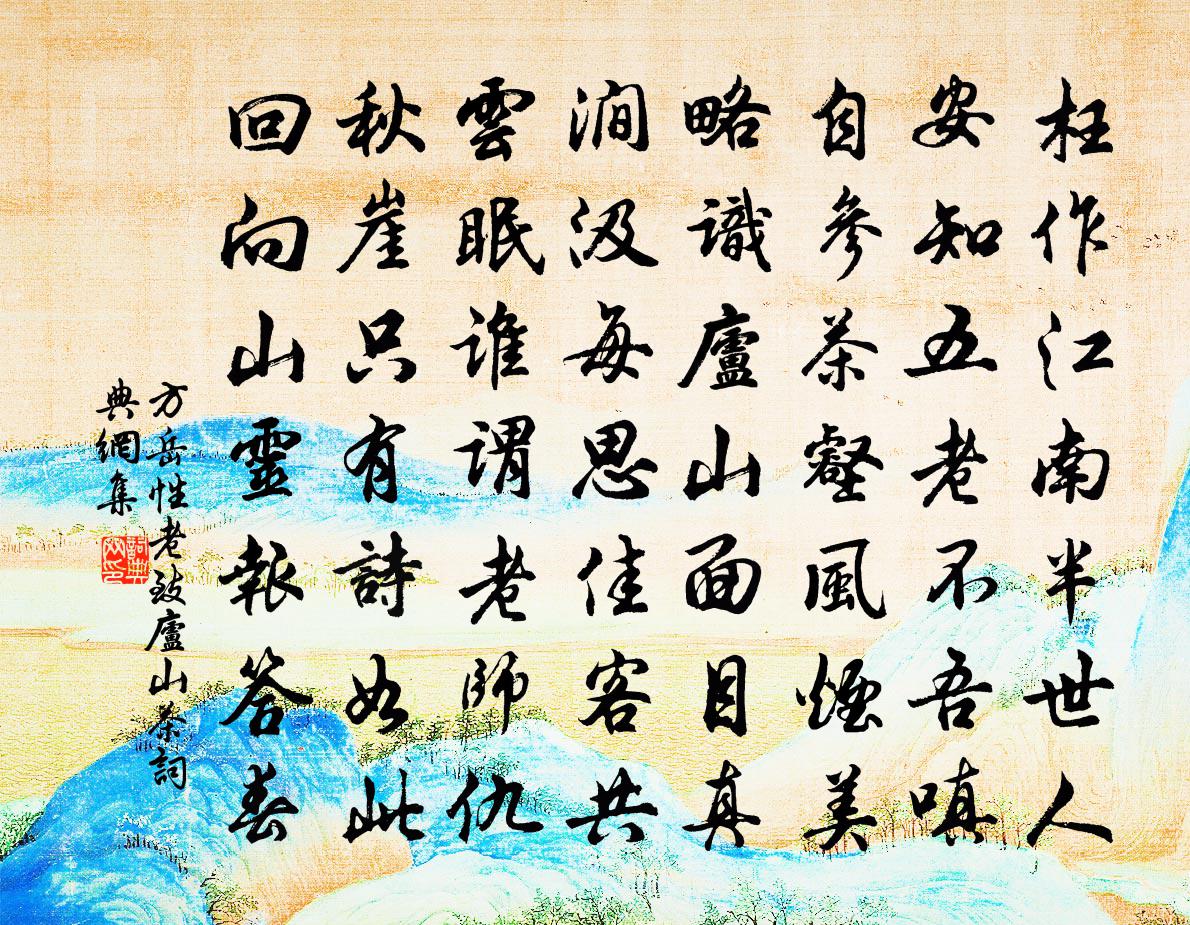 枉作江南半世人
安知五老不吾嗔
自參茶壑風煙美
略識廬山面目真
澗汲每思佳客共
雲眠誰謂老師仇
秋崖只有詩如此
回向山靈報答春
方岳性老致廬山茶詞
典網集
詞典網印